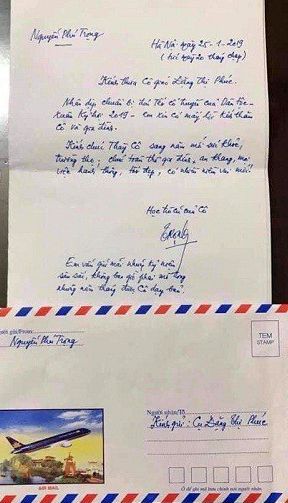 Nguyễn Phú Trọng
Hà Nội ngày 25-1-2019
(tức ngày 20 tháng chạp)
Kính thưa Cô giáo Đặng Thị Phúc.
Nhân dịp chuẩn bị đón Tết cổ truyền của Dân tộc -
Xuân Kỷ Hợi 2019 - em xin có mấy lời kính thăm
Cô và gia đình.
Kính chúc Thầy Cô sang năm mới sức khoẻ,
trường thọ; chúc toàn thể gia đình, an khang, mọi
việc hanh thông, tốt đẹp, có nhiều niềm vui mới.
Học trò cũ của Cô
Trọng
Em vẫn giữ mãi những kỷ niệm
sâu sắc, không bao giờ phai mờ trong
những năm tháng được Cô dạy bảo.
Người gửi/From:
Nguyễn Phú Trọng
TEM
STAMP
Người nhận/To:
Kính gửi: Cụ Đặng Thị Phúc
AIR MAIL
Ô để ghi mã bưu chính nơi người nhận